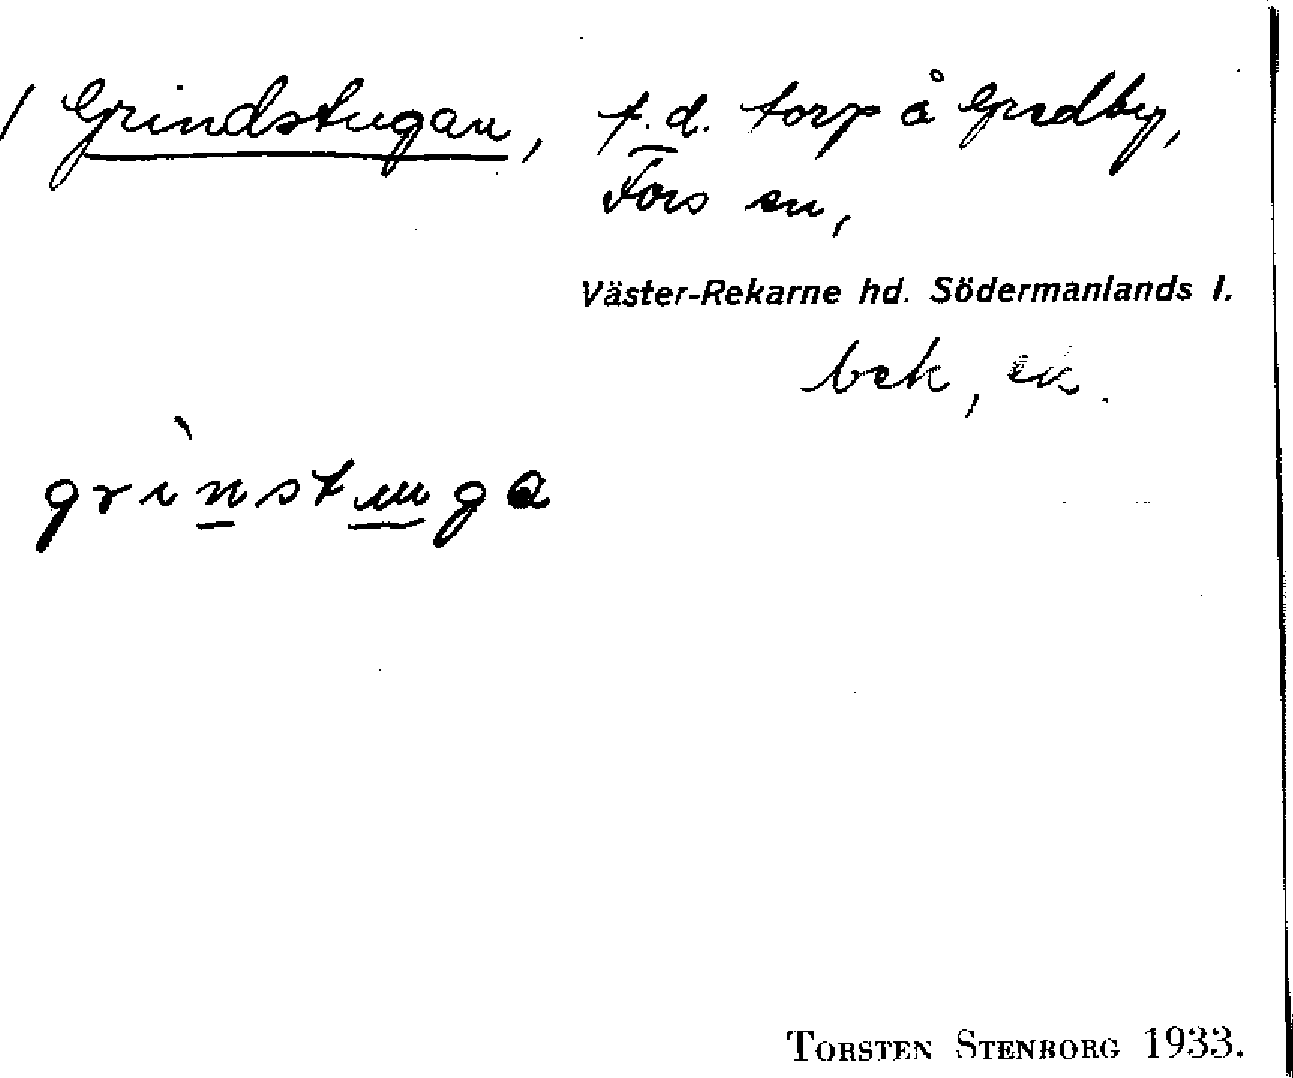 / Grindstugan, f.d. torp å Gredby,
Fors sn,
Väster-Rekarne hd. Södermanlands l.
bek, ek.
grìnstuga
TORSTEN STENBORG 1933.